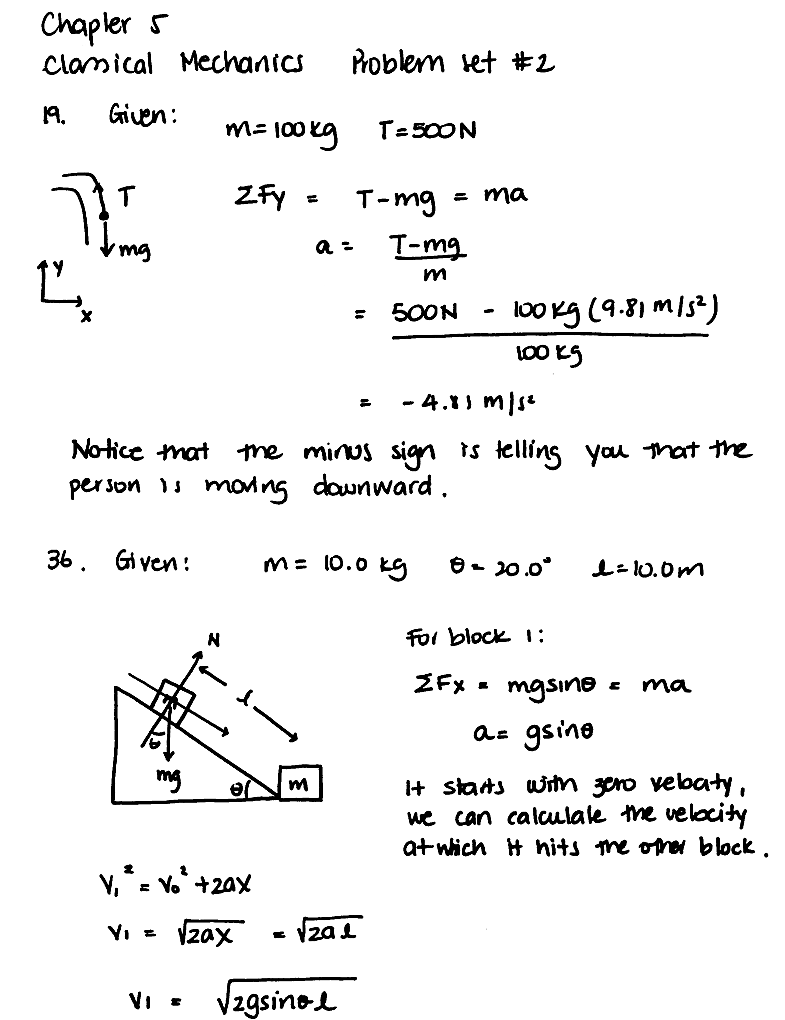 Chapter 5
Classical Mechanics Problem set #2
19. Given: m = 100 kg T = 500 N
T
mg
y
x
ΣFy = T - mg = ma
a = T - mg / m
= 500N - 100 kg (9.81 m/s²) / 100 kg
= -4.81 m/s²
Notice that the minus sign is telling you that the
person is moving downward.
36. Given: m = 10.0 kg θ = 20.0° l = 10.0 m
N
l
θ
mg
θ
m
For block 1:
ΣFx = mgsinθ = ma
a = gsinθ
It starts with zero velocity,
we can calculate the velocity
at which it hits the other block.
V₁² = V₀² + 2ax
V₁ = √2ax = √2al
V₁ = √2gsinθl